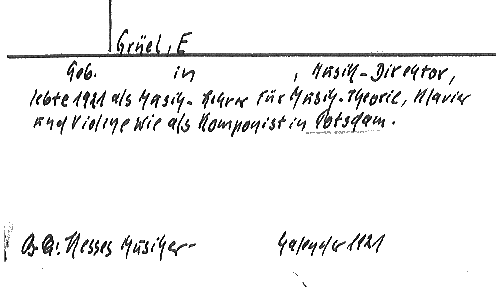 Grüel, E
Geb. in , Musik-Direktor,
lebte 1921 als Musik-Lehrer für Musik-Theorie, Klavier
und Violine wie als Komponist in Potsdam.
Hesses Musiker- Kalender 1921